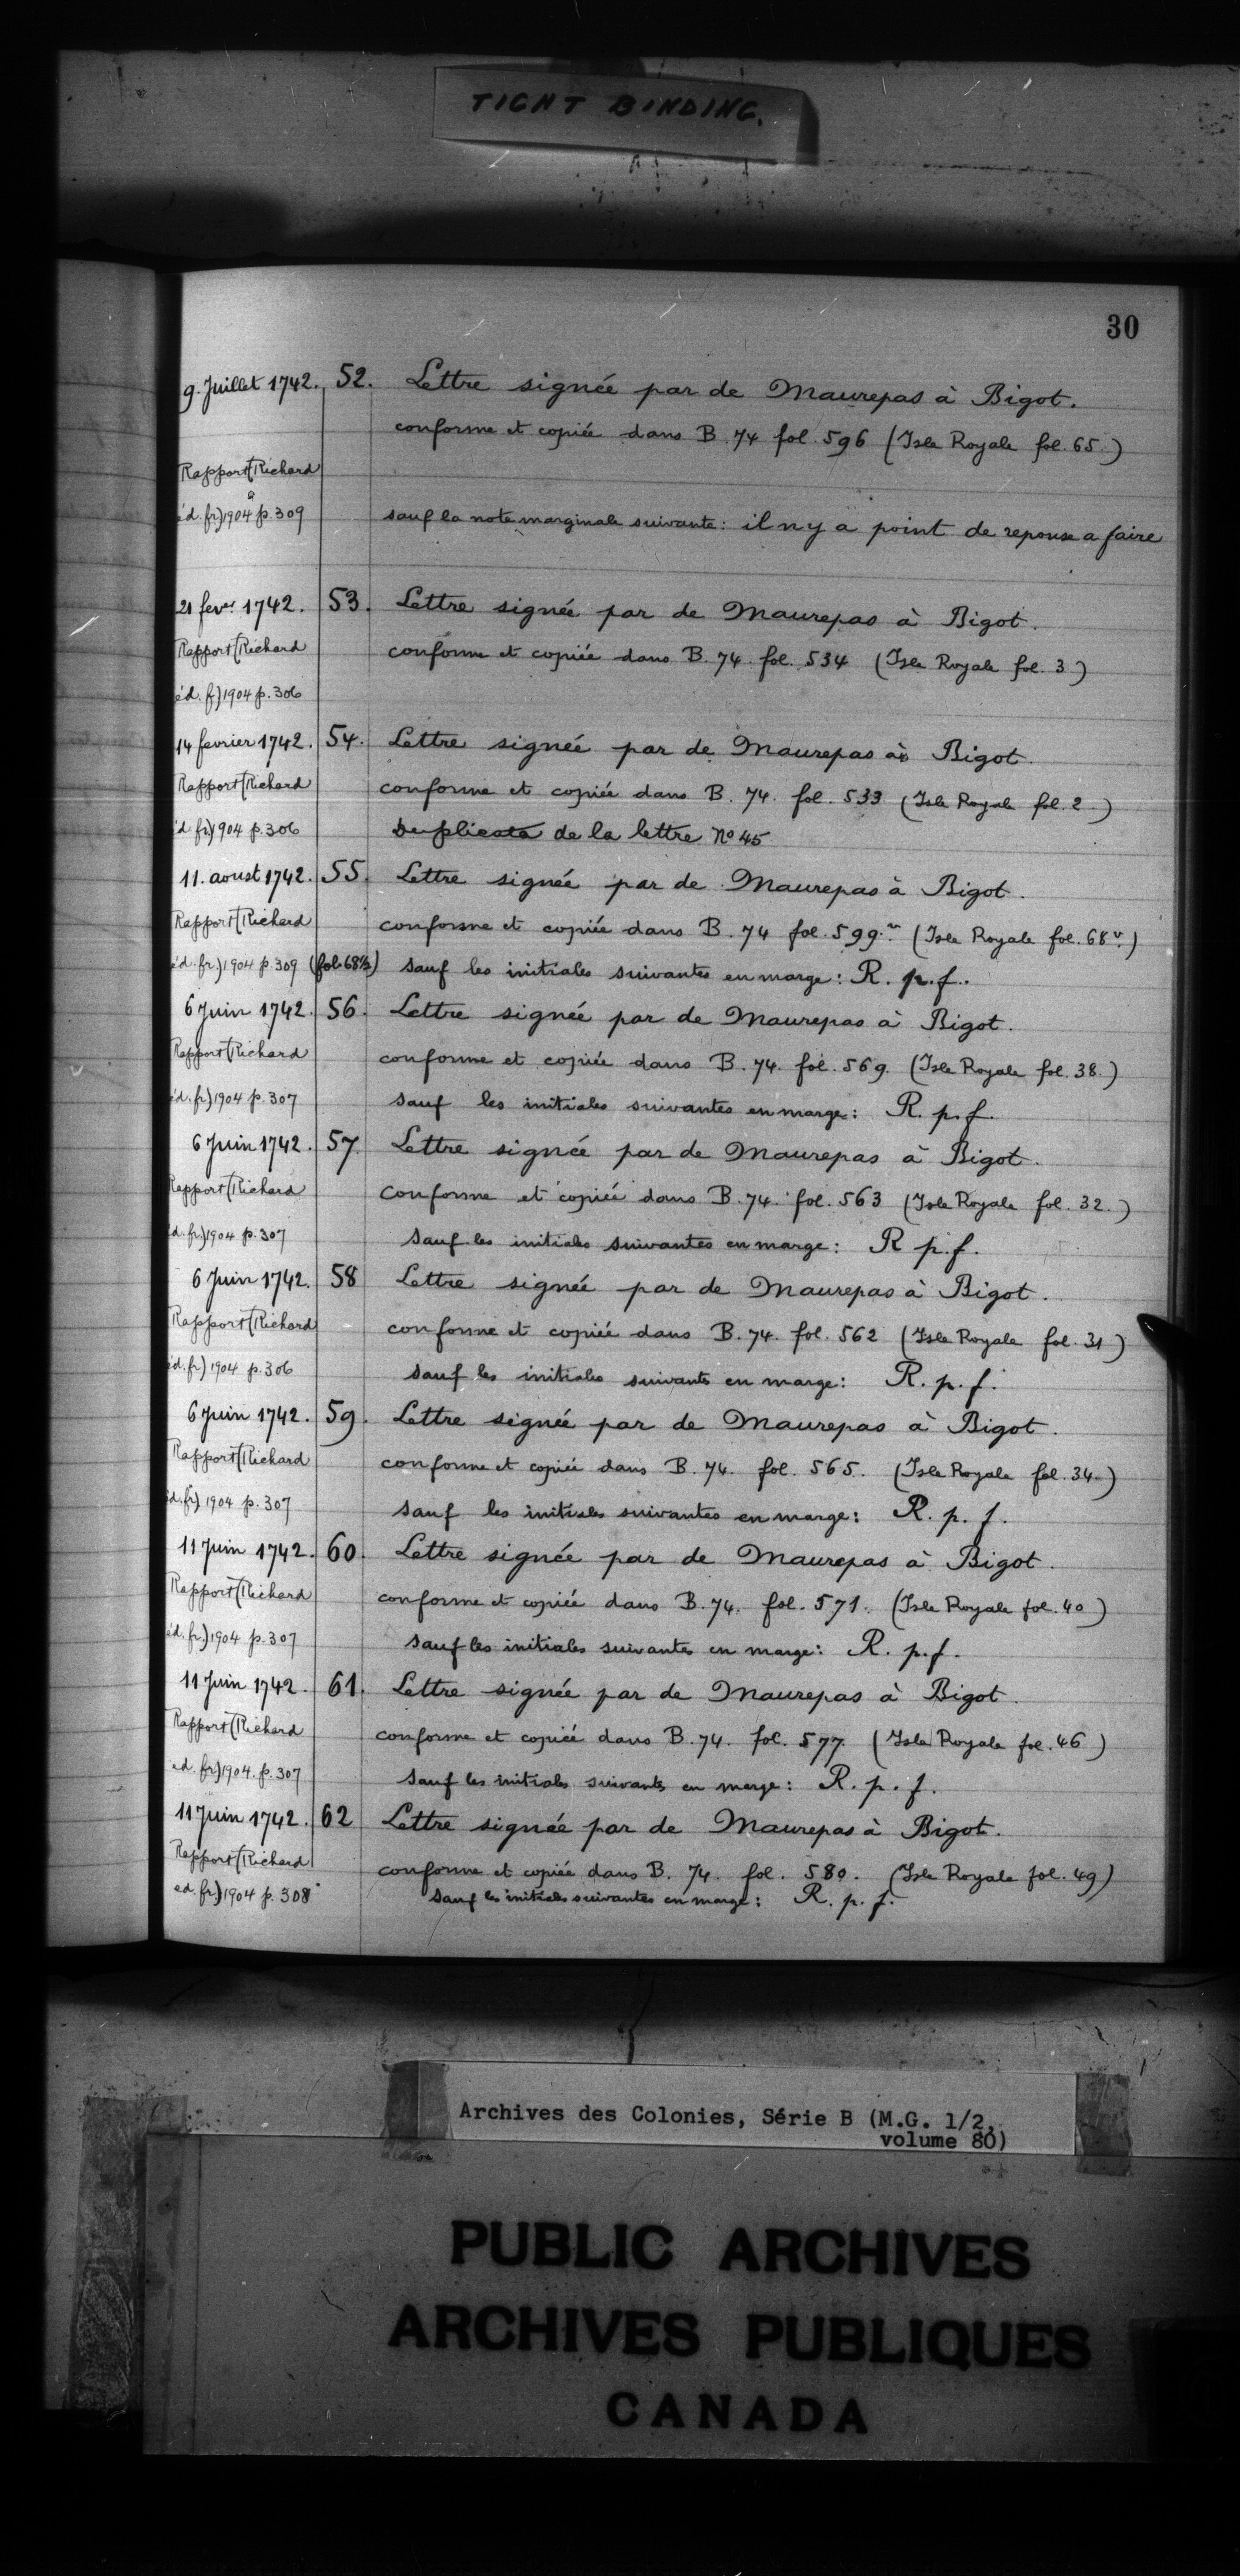 TIGHT BINDING.
30
9. Juillet 1742. 52. Lettre signée par de Maurepas à Bigot.
conforme et copiée dans B. 74 fol. 596 (Isle Royale fol. 65.)
Rapport (Richard
éd. fr.) 1904 p. 309 sauf la note marginale suivante: il n y a point de reponse a faire
21 fever 1742. 53. Lettre signée par de Maurepas à Bigot.
Rapport (Richard conforme et copiée dans B. 74. fol. 534 (Isle Royale fol. 3)
éd. f) 1904 p. 306
14 fevrier 1742. 54. Lettre signée par de Maurepas à Bigot.
Rapport (Richard conforme et copiée dans B. 74. fol. 533 (Isle Royale fol. 2.)
éd fr) 1904 p. 306 Duplicata de la lettre No 45
11. aoust 1742. 55. Lettre signée par de Maurepas à Bigot.
Rapport (Richard conforme et copiée dans B. 74 fol. 599.vo (Isle Royale fol. 68 v.)
éd. fr.) 1904 p. 309 (fol. 68½) sauf les initiales suivantes en marge: R. p. f.
6 Juin 1742. 56. Lettre signée par de Maurepas à Bigot.
Rapport (Richard conforme et copiée dans B. 74. fol. 569. (Isle Royale fol. 38.)
éd. fr.) 1904 p. 307 sauf les initiales suivantes en marge: R. p. f.
6 Juin 1742. 57. Lettre signée par de Maurepas à Bigot.
Rapport (Richard conforme et copiée dans B. 74. fol. 563 (Isle Royale fol. 32.)
éd. fr.) 1904 p. 307 sauf les initiales suivantes en marge: R p. f.
6 Juin 1742. 58 Lettre signée par de Maurepas à Bigot.
Rapport (Richard conforme et copiée dans B. 74. fol. 562 (Isle Royale fol. 31)
éd. fr.) 1904 p. 306 sauf les initiales suivants en marge: R. p. f.
6 Juin 1742. 59. Lettre signée par de Maurepas à Bigot.
Rapport (Richard conforme et copiée dans B. 74. fol. 565. (Isle Royale fol. 34.)
éd. fr.) 1904 p. 307 sauf les initiales suivantes en marge: R. p. f.
11 Juin 1742. 60. Lettre signée par de Maurepas à Bigot.
Rapport (Richard conforme et copiée dans B. 74. fol. 571. (Isle Royale fol. 40)
éd. fr.) 1904 p. 307 sauf les initiales suivantes en marge: R. p. f.
11 Juin 1742. 61. Lettre signée par de Maurepas à Bigot.
Rapport (Richard conforme et copiée dans B. 74. fol. 577. (Isle Royale fol. 46)
éd. fr.) 1904. p. 307 sauf les initiales suivants en marge: R. p. f.
11 Juin 1742. 62 Lettre signée par de Maurepas à Bigot.
Rapport (Richard conforme et copiée dans B. 74. fol. 580. (Isle Royale fol. 49)
ed. fr.) 1904 p. 308 sauf les initiales suivantes en marge: R. p. f.
Archives des Colonies, Série B (M.G. 1/2,
volume 80)
PUBLIC ARCHIVES
ARCHIVES PUBLIQUES
CANADA